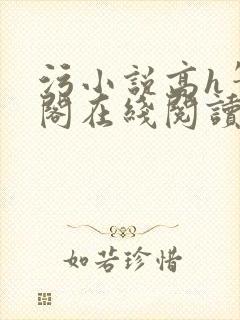 污小说高h
阁在线阅读
如若珍惜